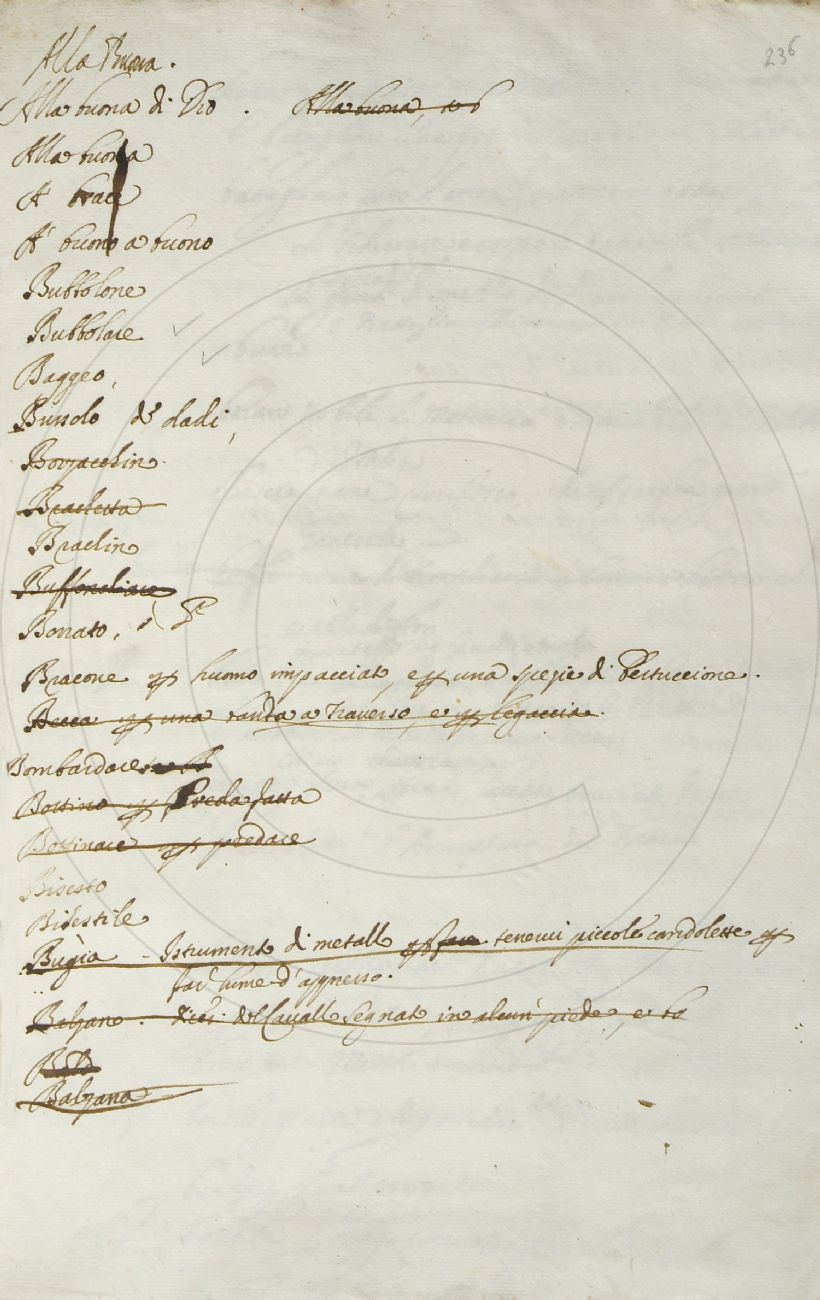 236
Alla Buona.
Alla buona di Dio. Alla buona, e b
Alla buona
A brace
A buono a buono
Bubbolone
Bubbolare
Baggeo,
Bussolo de dadi,
Borzacchino.
Brachetta
Brachino
Bonato,
Bracone p huomo impacciato, e p una spezie di Bertuccione.
Becca p una banda a traverso, e p legaccia.
Bombardare
Bottino p Preda fatta
Bottinare p predare
Bisesto
Bisestile
Bugia - Istrumento di metallo p fare tenervi piccole candolette p
far lume d'appresso.
Balzano. dicesi del Cavallo segnato in alcun piede, e ba
Balzana